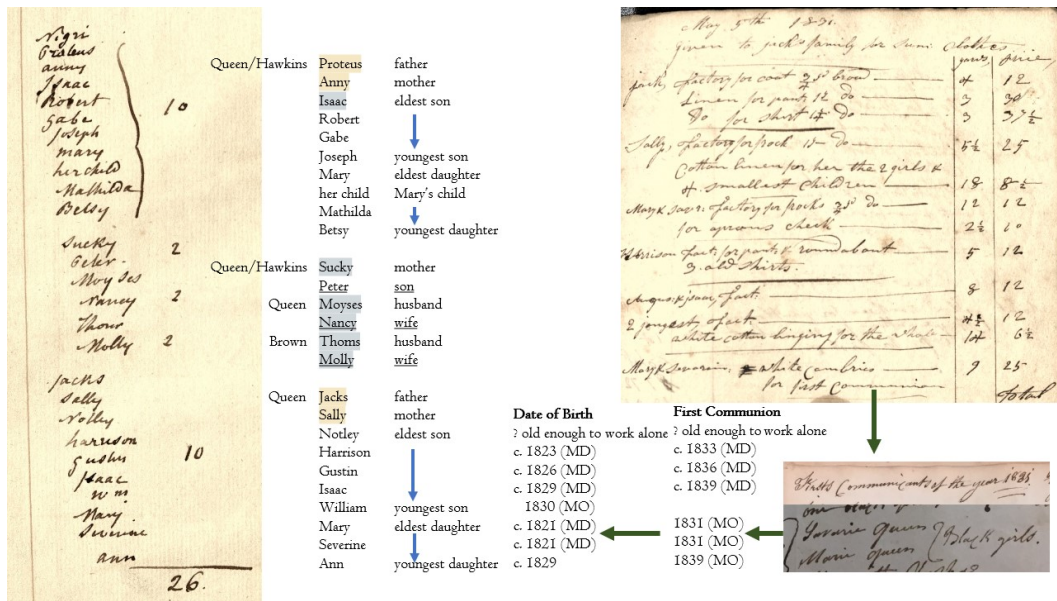 Nigri
Proteus
anny
Isaac
Robert
Gabe
10
Joseph
mary
her child
Mathilda
Betsy
Sucky
2
Peter
Moyses
Nancy
2
Thom
Molly
2
Jacks
Sally
Notley
harrison
gustus
10
Isaac
Wm
Mary
Siverine
ann
26.
Queen/Hawkins Proteus father
Anny mother
Isaac eldest son
Robert
Gabe
Joseph youngest son
Mary eldest daughter
her child Mary's child
Mathilda
Betsy youngest daughter
Queen/Hawkins Sucky mother
Peter son
Queen Moyses husband
Nancy wife
Brown Thoms husband
Molly wife
Queen Jacks father
Sally mother
Notley eldest son
Harrison
Gustin
Isaac
William youngest son
Mary eldest daughter
Severine
Ann youngest daughter
Date of Birth
? old enough to work alone
c. 1823 (MD)
c. 1826 (MD)
c. 1829 (MD)
1830 (MO)
c. 1821 (MD)
c. 1821 (MD)
c. 1829
First Communion
? old enough to work alone
c. 1833 (MD)
c. 1836 (MD)
c. 1839 (MD)
1831 (MO)
1831 (MO)
1839 (MO)
May 5th 1831.
given to jack's family for sum Clothes
yards, price,
jack, factory for coat brow 4 12
Linen for pant do 3 30
Do for shirt do 3 37 1/2
Sally, factory for frock do 5 1/2 25
Cotton linen for her the 2 girls &
4 smallest children 18 8 1/2
Mary & Saver: factory for frocks do 12 12
for aprons check 2 1/2 10
Harrison fact: for pants & roundabout 5 12
3 old shirts.
Angus & isaac, fact. 8 12
2 jongest, fact. 4 1/2 12
white cotton linging for the whole 14 6 1/2
Mary & Saverin, white cambries 9 25
for first Communion
Total
Firsts Communicants of the year 1831
Savarie queen
Marie queen
Black girls.